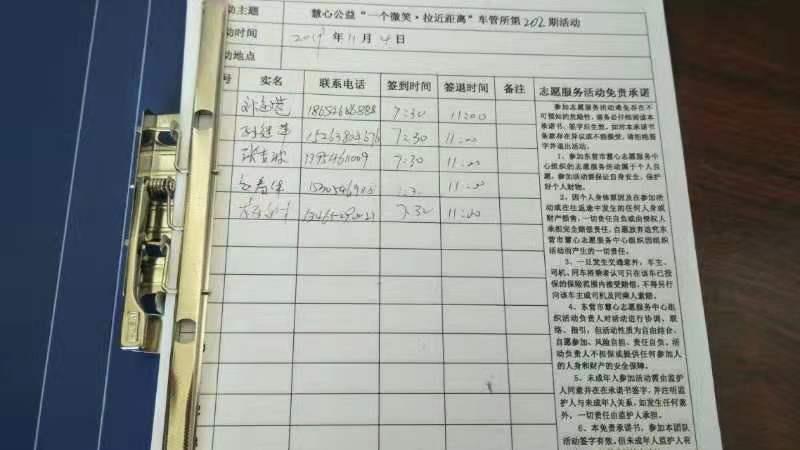 动主题 慧心公益“一个微笑·拉近距离”车管所第202期活动
动时间 2019年11月4日
动地点
号 实名 联系电话 签到时间 签退时间 备注 志愿服务活动免责承诺
7:30 11:00
7:30 11:00
7:30 11:00
11:00
7:30 11:00
参加志愿服务活动难免存在不
可预知的危险性，请务必仔细阅读本
承诺书，签字后生效。如对本承诺书
条款存在异议或不能接受，请拒绝签
字并退出活动。
1、参加东营市慧心志愿服务中
心组织的志愿服务活动属于个人自
愿，参加活动要保证自身安全，保护
好个人财物。
2、因个人身体原因及在参加活
动或在往返途中发生的任何人身或
财产损害，一切责任自负或由侵权人
承担完全赔偿责任，自愿放弃追究东
营市慧心志愿服务中心组织因组织
活动而产生的一切责任。
3、一旦发生交通意外，车主、
司机、同车搭乘者认可只在该车已投
保的保险范围内接受赔偿，不得另行
向该车主或司机及同乘人索赔。
4、东营市慧心志愿服务中心组
织活动负责人对活动进行协调、联
络、指引，但活动性质为自由结合、
自愿参加、风险自担、责任自负。活
动负责人不担保或提供任何参加人
的人身和财产的安全保障。
5、未成年人参加活动需由监护
人同意并在在承诺书签字，并注明监
护人与未成年人关系，如发生任何意
外，一切责任由监护人承担。
6、本免责承诺书，参加本团队
活动签字有效，但未成年人监护人有